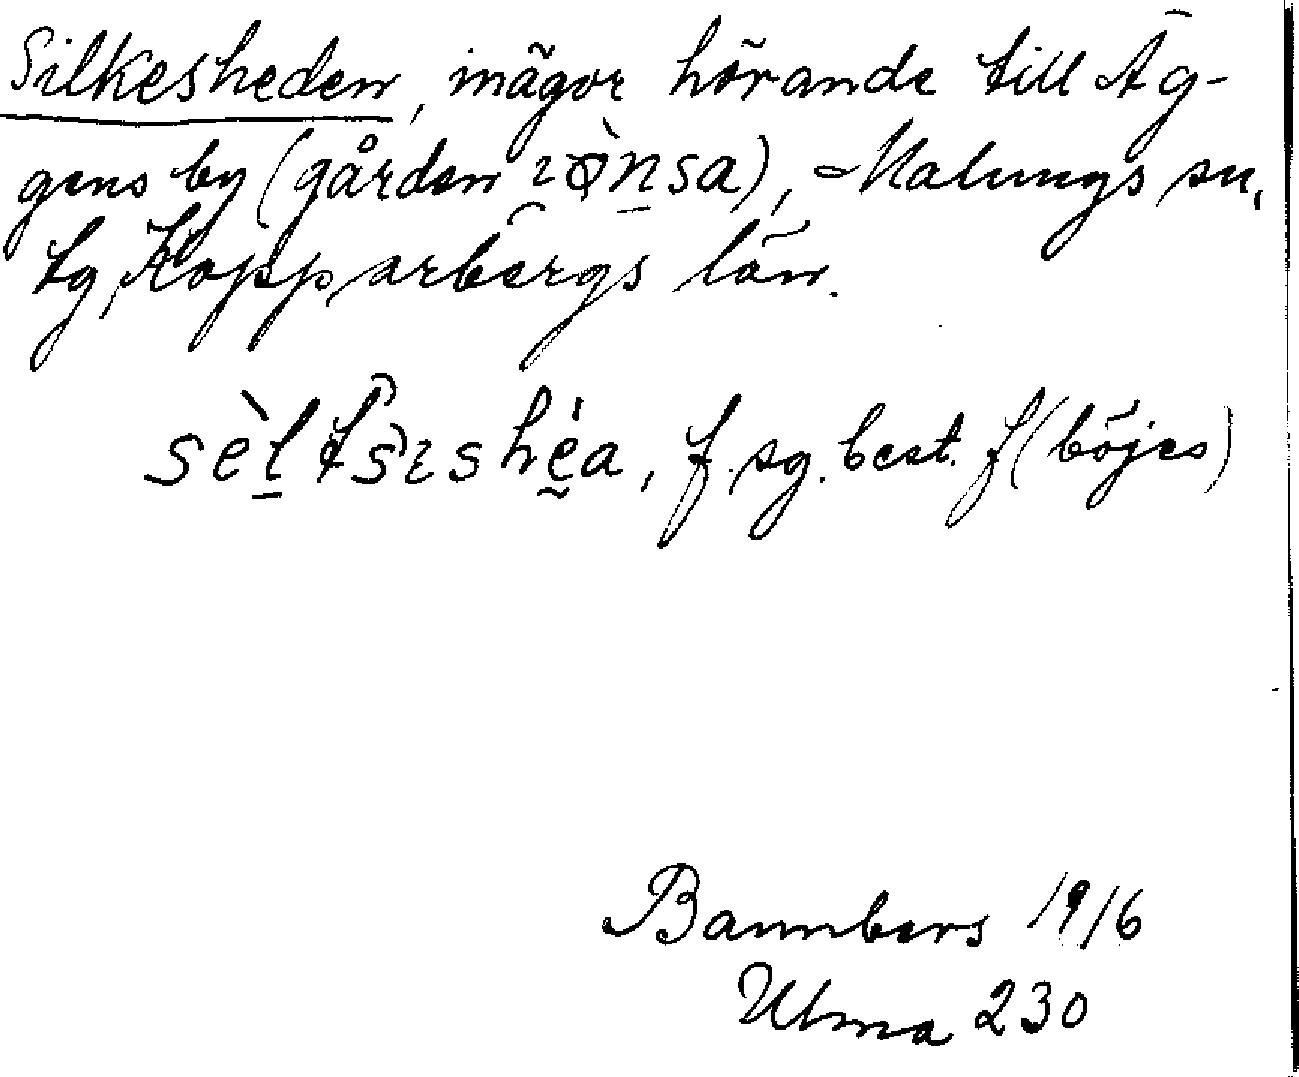 Silkesheden, inägor hörande till Äg-
gens by (gården ), Malungs sn,
Kopparbergs län.
f. sg. best. f (böjes)
Bannbers 1916
Ulma 230